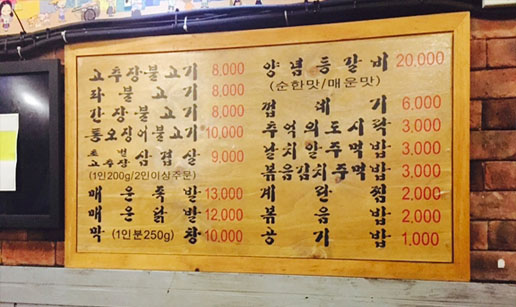 고추장·불고기 8,000
좌불고기 8,000
간장·불고기 8,000
통오징어불고기 10,000
초벌삼겹살 9,000
(1인200g/2인이상주문)
매운족발 13,000
매운닭발 12,000
막(1인분250g)창 10,000
양념등갈비 20,000
(순한맛/매운맛)
껍데기 6,000
추억의도시락 3,000
날치알주먹밥 3,000
볶음김치주먹밥 3,000
계란찜 2,000
볶음밥 2,000
공기밥 1,000